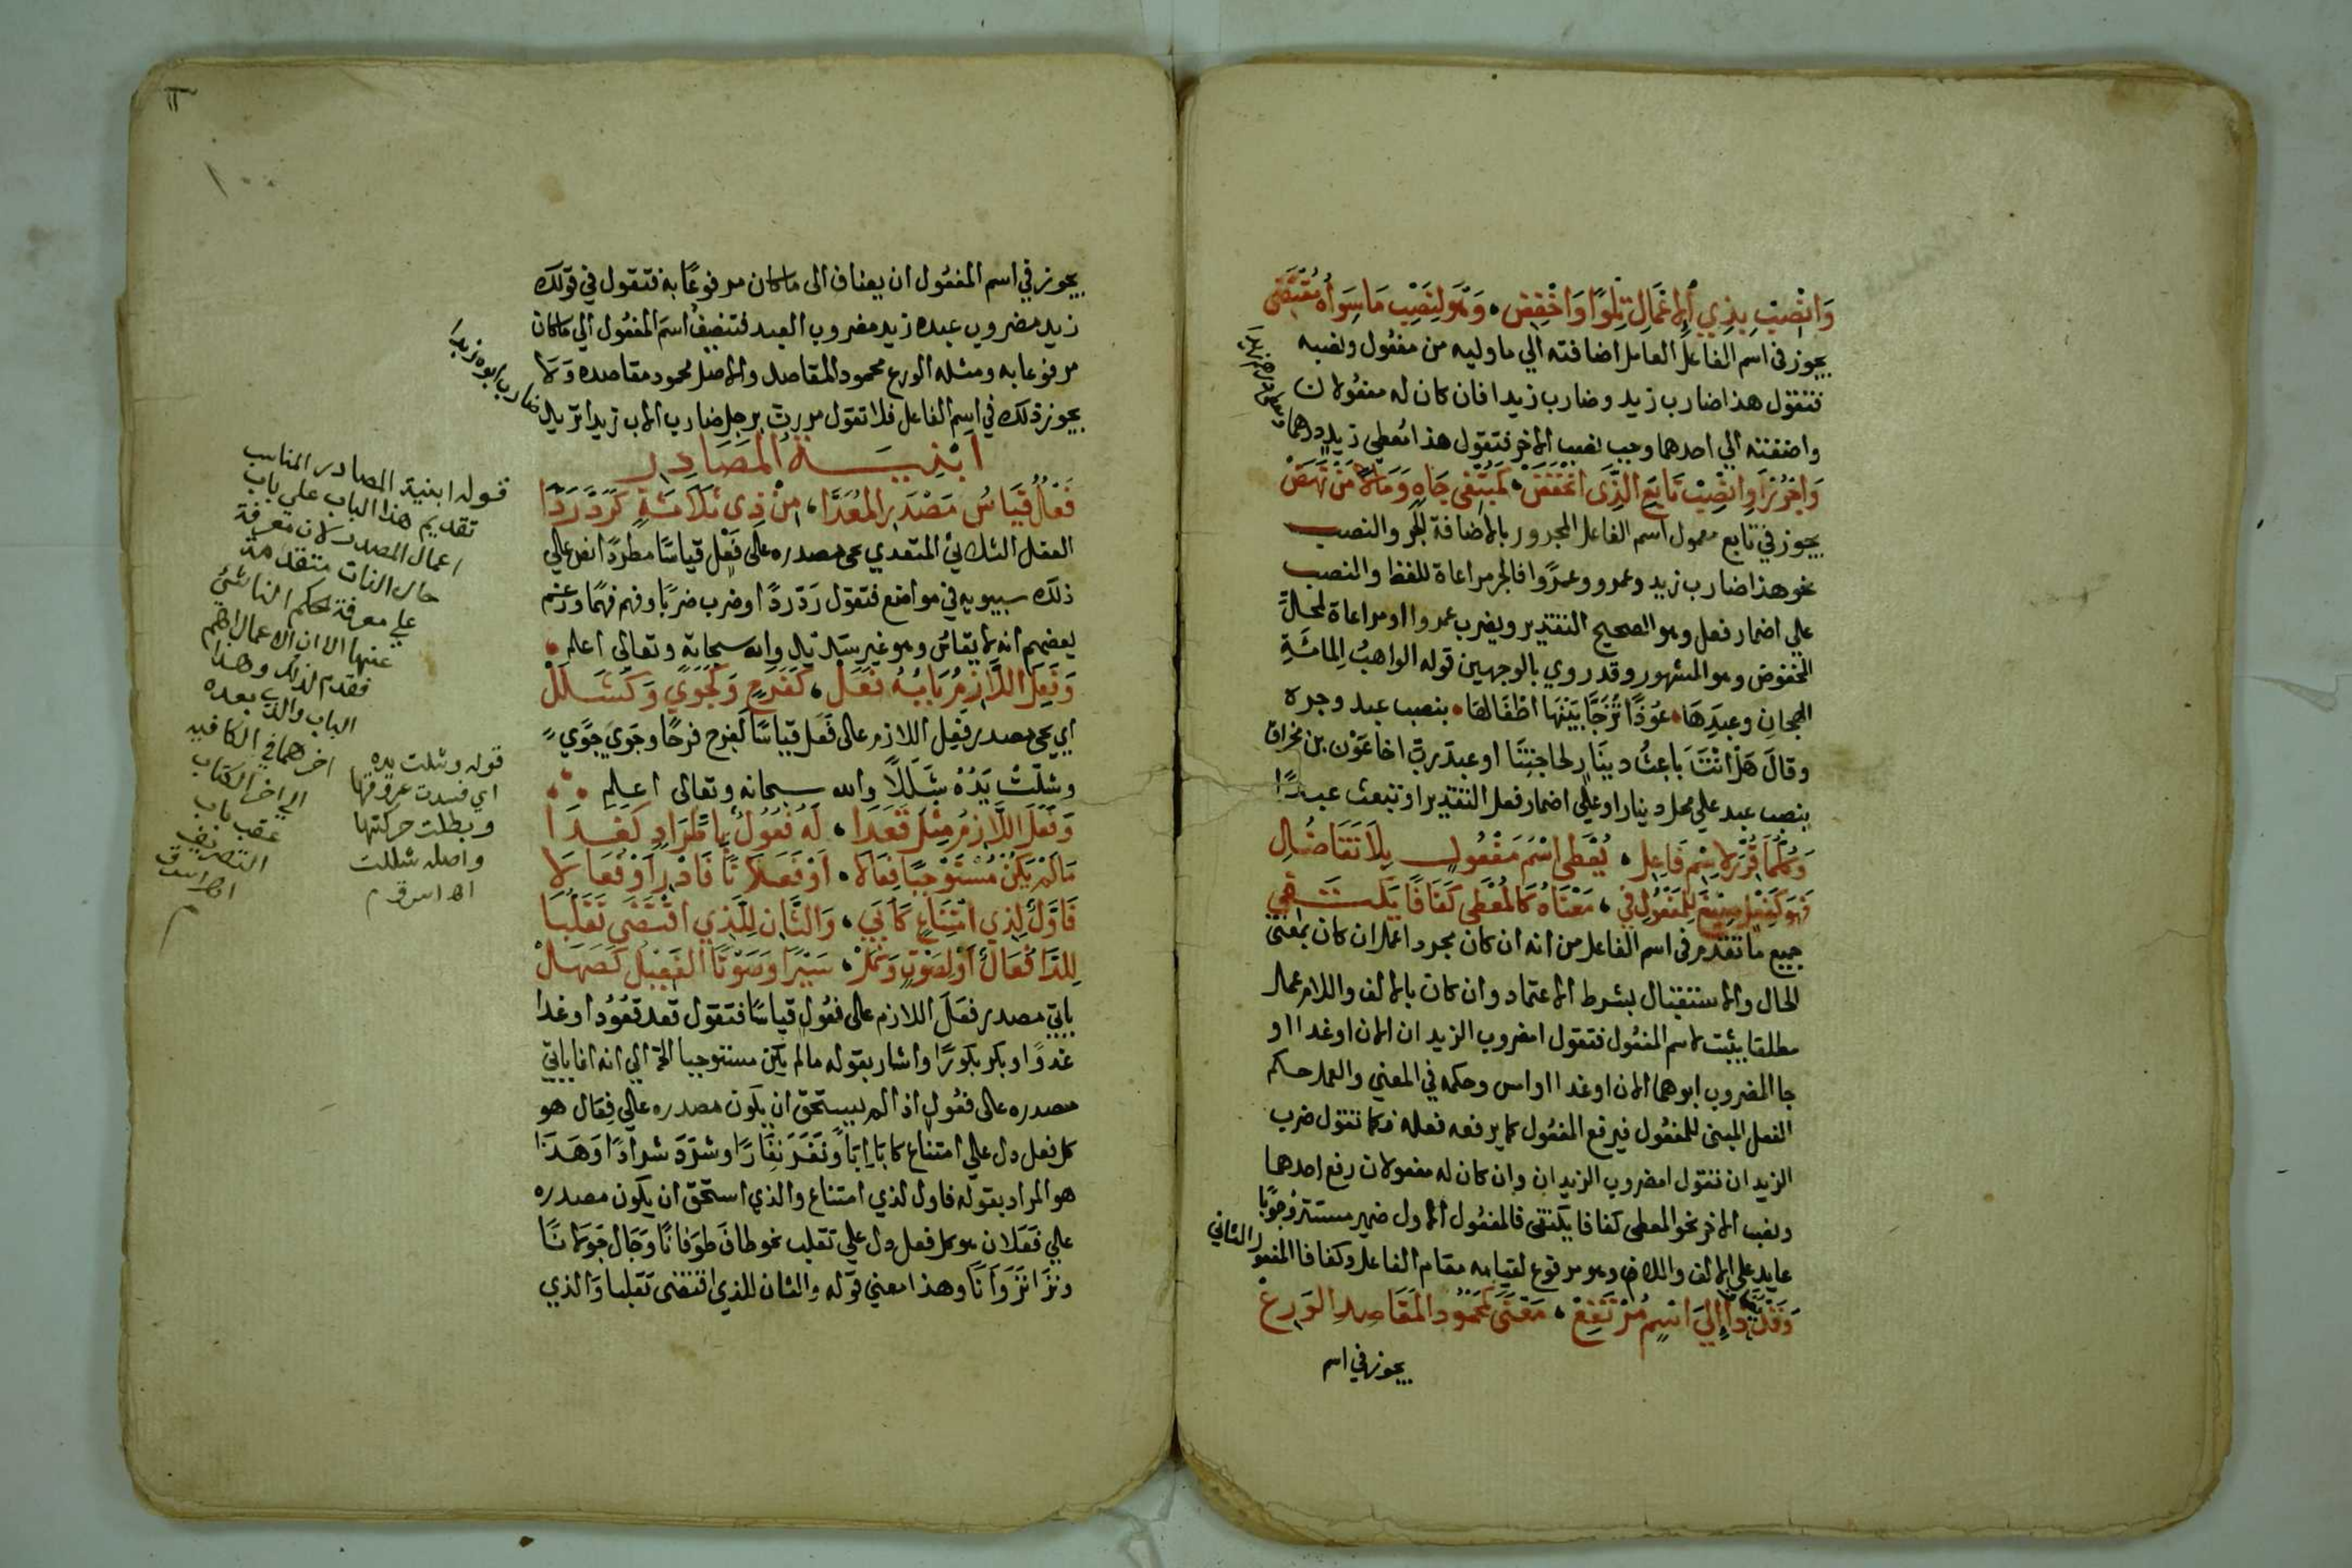 وَانْصِبْ بِذِي الْاِعْمَالِ تِلْوًا وَاخْفِضِ ، وَهْوَ لِنَصْبِ مَا سِوَاهُ مُقْتَضِى
يجوز فى اسم الفاعل العامل اضافته الي ما وليه من مفعول ونصبه
فتقول هذا ضارب زيد وضارب زيدا فان كان له مفعولان
واضفته الي احدهما وجب نصب الاخر فتقول هذا معطي زيد درهما
وَاجْرُرْ اَوِ انْصِبْ تَابِعَ الَّذِى انْخَفَضْ ، كَمُبْتَغِى جَاهٍ وَمَالًا مَنْ نَهَضْ
يجوز في تابع معمول اسم الفاعل المجرور بالاضافة الجر والنصب
نحو هذا ضارب زيد وعمرو وعمرًوا فالجر مراعاة للفظ والنصب
علي اضمار فعل وهو الصحيح التقدير ويضرب عمروا او مراعاة لمحل
المخفوض وهو المشهور وقد روي بالوجهين قوله الواهبُ المائَةِ
الهجانِ وعبدِهَا ، عُوْذًا تُزَجَّى بَيْنَهَا اطْفَالهَا ، بنصب عبد وجره
وقال هَلْ انْتَ بَاعِثُ دينَارٍ لحاجتِنَا او عبدَ ربٍّ اخا عَوْن بن مخراق
بنصب عبد علي محل دينار او علي اضمار فعل التقدير او تبعث عبد
وَكُلُّمَا قُرِّرَ لِاسْمِ فَاعِلِ ، يُعْطَى اسْمُ مَفْعُولٍ بِلَا تَفَاضُلِ
فَهْوَ كَفِعْلٍ صِيْغَ لِلْمَفْعُولِ فِي ، مَعْنَاهُ كَالْمُعْطَى كَفَافًا يَكْتَفِي
جميع ما تقدم فى اسم الفاعل من انه ان كان مجرد اعمل ان كان بمعنى
الحال والاستقبال بشرط الاعتماد وان كان بالالف واللام عمل
مطلقا يثبت لاسم المفعول فتقول امضروب الزيدان الان او غدا او
جا المضروب ابوهما الان او غدا او امس وحكمه في المعني والعمل حكم
الفعل المبنى للمفعول فيرفع المفعول كما يرفعه فعله فكما تقول ضرب
الزيدان تقول امضروب الزيدان وان كان له مفعولان رفع احدهما
ونصب الاخر نحو المعطى كفافا يكتفى فالمفعول الاول ضمير مستتر وجوبًا
عايد علي الالف واللام وهو مرفوع لقيامه مقام الفاعل وكفافا المفعول الثاني
وَقَدْ يُضَافُ ذَا اِلَي اسْمٍ مُرْتَفِعْ ، مَعْنًى كَمَحْمُودِ المَقَاصِدِ الوَرِعْ
يجوز في اسم
يجوز في اسم المفعول ان يضاف الى ما كان مرفوعًا به فتقول في قولك
زيد مضروب عبده زيد مضروب العبد فتضيفُ اسمَ المفعُول الي ما كان
مرفوعا به ومثله الورع محمود المقاصد والاصل محمود مقاصده وَلا
يجوز ذلك في اسم الفاعل فلا تقول مررت برجل ضارب الاب زيدا تريد
ضارب ابوه زيدا
اَبْنِيَةُ المَصَادِرِ
فَعْلٌ قِيَاسُ مَصْدَرِ المُعَدَّا ، مِنْ ذِى ثَلَاثَةٍ كَرَدَّ رَدَّا
الفعل الثلاثي المتعدي يجى مصدره على فَعْل قياسًا مطردًا نص على
ذلك سيبويه في مواضع فتقول رَدّ ردًّا وضرب ضربًا وفهم فهمًا وزعم
بعضهم انه لا يقاس وهو غير سديد والله سبحانه وتعالى اعلم
وَفَعِلَ اللَّازِمُ بَابُهُ فَعَلْ ، كَفَرَحٍ وَكَجَوَىً وَكَشَلَلْ
اي يجى مصدر فَعِل اللازم على فَعَل قياسًا كفرح فرحًا وجَوِيَ جَوًي
وشَلّتْ يَدُهُ شَلَلًا والله سبحانه وتعالى اعلم
وَفَعَلَ اللَّازِمُ مِثْلَ قَعَدَا ، لَهُ فُعُوْلٌ بِاطِّرَادٍ كَغَدَا
مَا لَمْ يَكُنْ مُسْتَوْجِبًا فِعَالَا ، اَوْ فَعَلَانًا فَادْرِ اَوْ فُعَالَا
فَاَوَّلٌ لِذِي امْتِنَاعٍ كَاَبَي ، وَالثَّانِ لِلَّذِي اقْتَضَى تَقَلُّبَا
لِلدَّا فُعَالٌ اَوْ لِصَوْتٍ وَشَمَلْ ، سَيْرًا وَصَوْتًا الفَعِيْلُ كَصَهَلْ
ياتي مصدر فعَلَ اللازم على فعُول قياسًا فتقول قعد قُعُودا وغدا
غدوًا وبكر بكورًا واشار بقوله ما لم يكن مستوجبا الخ الي انه انما ياتي
مصدره على فعُول اذا لم يستحق ان يكون مصدره علي فِعَال هو
كل فعل دل علي امتناع كابَا اِبًا ونَفَرَ نِفَارًا وشرَدَ شرادًا وَهَذا
هو المراد بقوله فاول لذي امتناع والذي استحق ان يكون مصدره
علي فعَلان هو كل فعل دل علي تقلب نحو طافَ طوَفانًا وَجَال جَوَلانًا
ونزَا نَزَوَانًا وهذا معني قوله والثان للذي اقتضى تقلبا وَالذي
قوله ابنية المصادر المناسب
تقديم هذا الباب على باب
اعمال المصدر لان معرفة
حال الذات متقدمة
علي معرفة الحكم الناشئ
عنها الا ان الاعمال اهم
فقدم لذلك وهذا
الباب والذي بعده
اخرهما في الكافيه
الي اخر الكتاب
عقب باب
التصريف
قوله وشلت يده
اي فسدت عروقها
وبطلت حركتها
واصله شللت